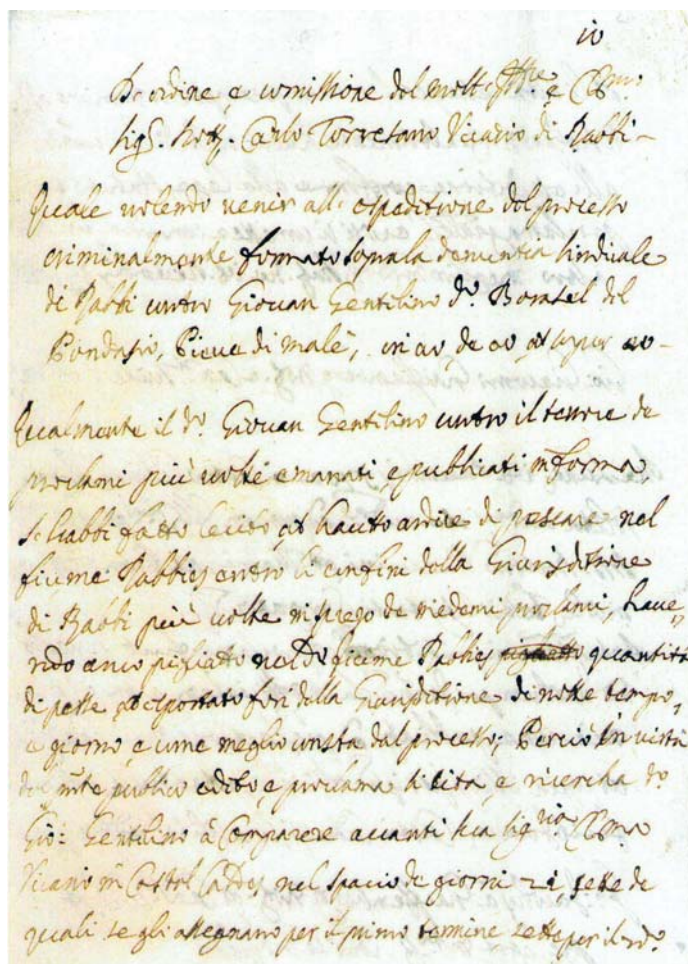 D'ordine, e comissione del molt' Ill.re e Cl.mo
Sig.r Nott. Carlo Torresano Vicario di Rabbi
Quale volendo venir all' espeditione del processo
criminalmente formato sopra la denontia sindicale
di Rabbi contro Giovan Gentilino d.o Bonsel del
Pondasio, Pieve di malè, in
Qualmente il d.o Giovan Gentilino contro il tenore de
proclami più volte emanati, e publicati in forma
s' habbi fatto lecito, et hauto ardire di pescare nel
fiume Rabbies entro li confini della Giurisditione
di Rabbi più volte in spregio de medemi proclami, have„
ndo anco pigliatto nel d.o fiume Rabbies quantità
di pesse, et esportato fori della Giurisditione di notte tempo,
e giorno, e come meglio consta dal processo; Perciò in virtù
del pnte publico editto, e proclama si cita, e ricercha d.o
Gio: Gentilino à Comparere avanti sua Sig.ria Cl.ma
Vicario in Castel Caldes nel spacio de giorni 21 sette de
quali se gli assegnano per il primo termine, sette per il 2do.